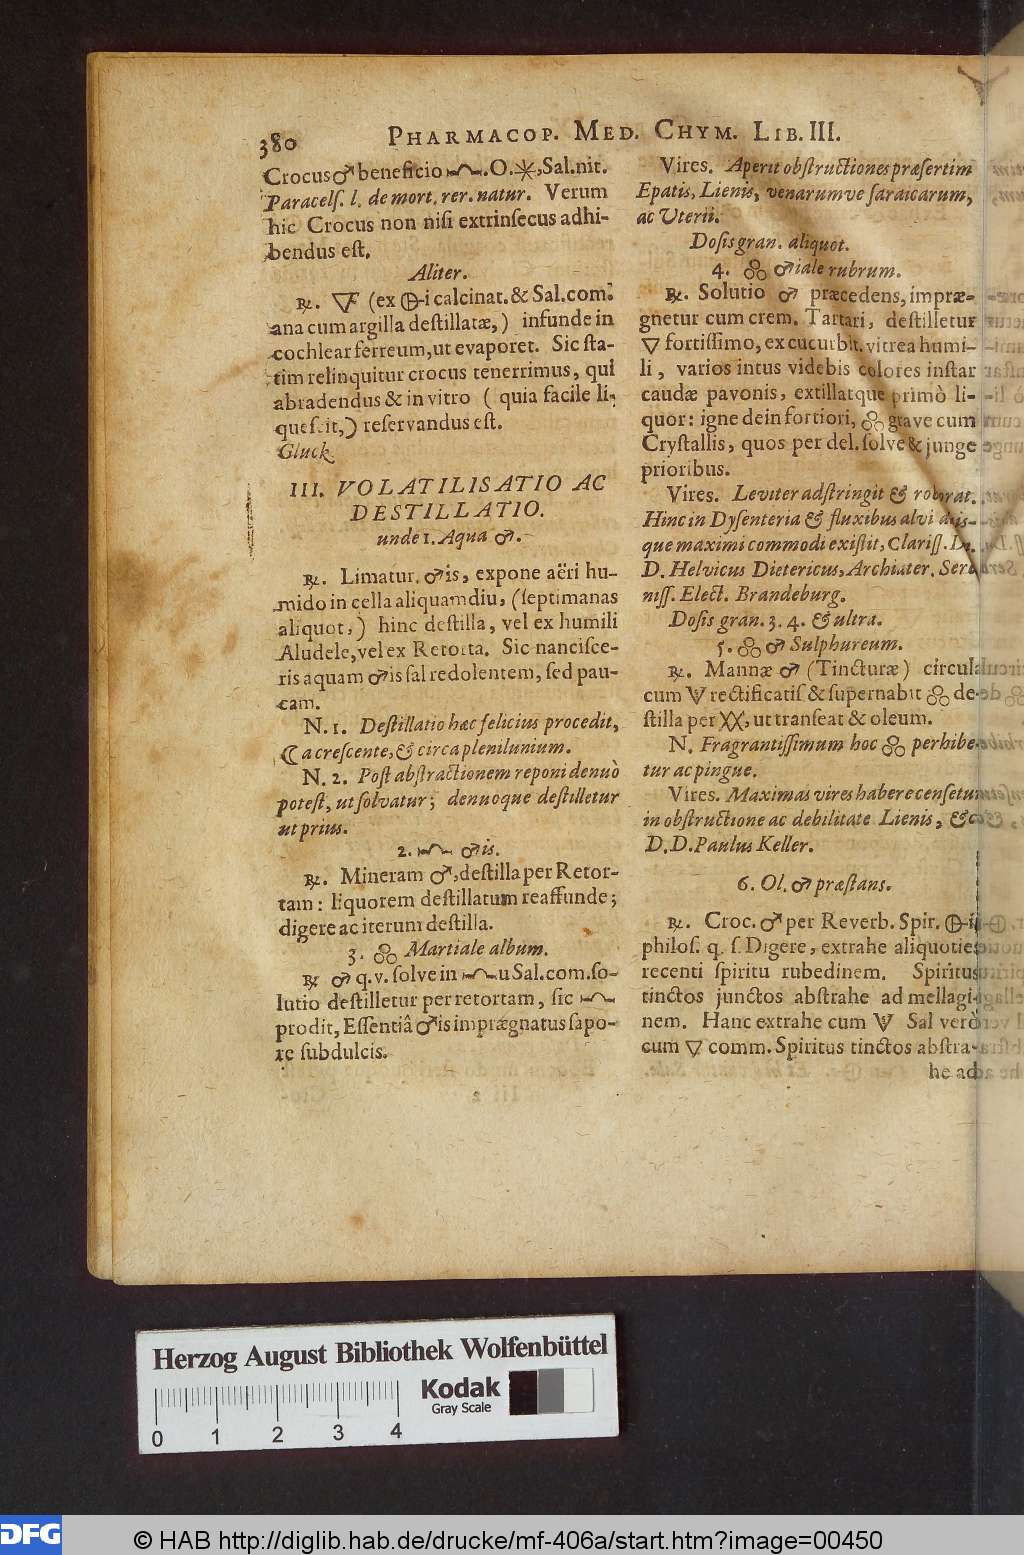 380
PHARMACOP. MED. CHYM. LIB. III.
Crocus ♂ beneficio . O. ✳, Sal. nit.
Paracelſ. l. de mort. rer. natur. Verum
hic Crocus non niſi extrinſecus adhi-
bendus eſt.
Aliter.
℞. (ex i calcinat. & Sal. com.
ana cum argilla deſtillatæ,) infunde in
cochlear ferreum, ut evaporet. Sic ſta-
tim relinquitur crocus tenerrimus, qui
abradendus & in vitro (quia facile li-
queſcit,) reſervandus eſt.
Gluck.
III. VOLATILISATIO AC
DESTILLATIO.
unde 1. Aqua ♂.
℞. Limatur. ♂is, expone aëri hu-
mido in cella aliquamdiu, (ſeptimanas
aliquot,) hinc deſtilla, vel ex humili
Aludele, vel ex Retorta. Sic nanciſce-
ris aquam ♂is ſal redolentem, ſed pau-
cam.
N. 1. Deſtillatio hæc felicius procedit,
☾ a creſcente, & circa plenilunium.
N. 2. Poſt abſtractionem reponi denuò
poteſt, ut ſolvatur; denuoque deſtilletur
ut prius.
2. ♂is.
℞. Mineram ♂, deſtilla per Retor-
tam: liquorem deſtillatum reaffunde;
digere ac iterum deſtilla.
3. Martiale album.
℞ ♂ q. v. ſolve in u Sal. com. ſo-
lutio deſtilletur per retortam, ſic
prodit, Eſſentiâ ♂is imprægnatus ſapo-
re ſubdulcis.
Vires. Aperit obſtructiones præſertim
Epatis, Lienis, venarumve ſaraicarum,
ac Uterii.
Doſis gran. aliquot.
4. ♂iale rubrum.
℞. Solutio ♂ præcedens, impræ-
gnetur cum crem. Tartari, deſtilletur
▽ fortiſſimo, ex cucurbit. vitrea humi-
li, varios intus videbis colores inſtar
caudæ pavonis, extillatque primò li-
quor: igne dein fortiori, grave cum
Cryſtallis, quos per del. ſolve & junge
prioribus.
Vires. Leviter adſtringit & roborat.
Hinc in Dyſenteria & fluxibus alvi aliis-
que maximi commodi exiſtit, Clariſſ. Dn.
D. Helvicus Dietericus, Archiater. Sere-
niſſ. Elect. Brandeburg.
Doſis gran. 3. 4. & ultra.
5. ♂ Sulphureum.
℞. Mannæ ♂ (Tincturæ) circula
cum rectificatiſ & ſupernabit de-
ſtilla per XX, ut tranſeat & oleum.
N. Fragrantiſſimum hoc perhibe-
tur ac pingue.
Vires. Maximas vires habere cenſetur
in obſtructione ac debilitate Lienis, &c.
D. D. Paulus Keller.
6. Ol. ♂ præſtans.
℞. Croc. ♂ per Reverb. Spir. i
philoſ. q. ſ. Digere, extrahe aliquoties
recenti ſpiritu rubedinem. Spiritus
tinctos junctos abſtrahe ad mellagi-
nem. Hanc extrahe cum Sal verò
cum ▽ comm. Spiritus tinctos abſtra-
he ad
Herzog August Bibliothek Wolfenbüttel
Kodak
Gray Scale
0 1 2 3 4
DFG
© HAB http://diglib.hab.de/drucke/mf-406a/start.htm?image=00450